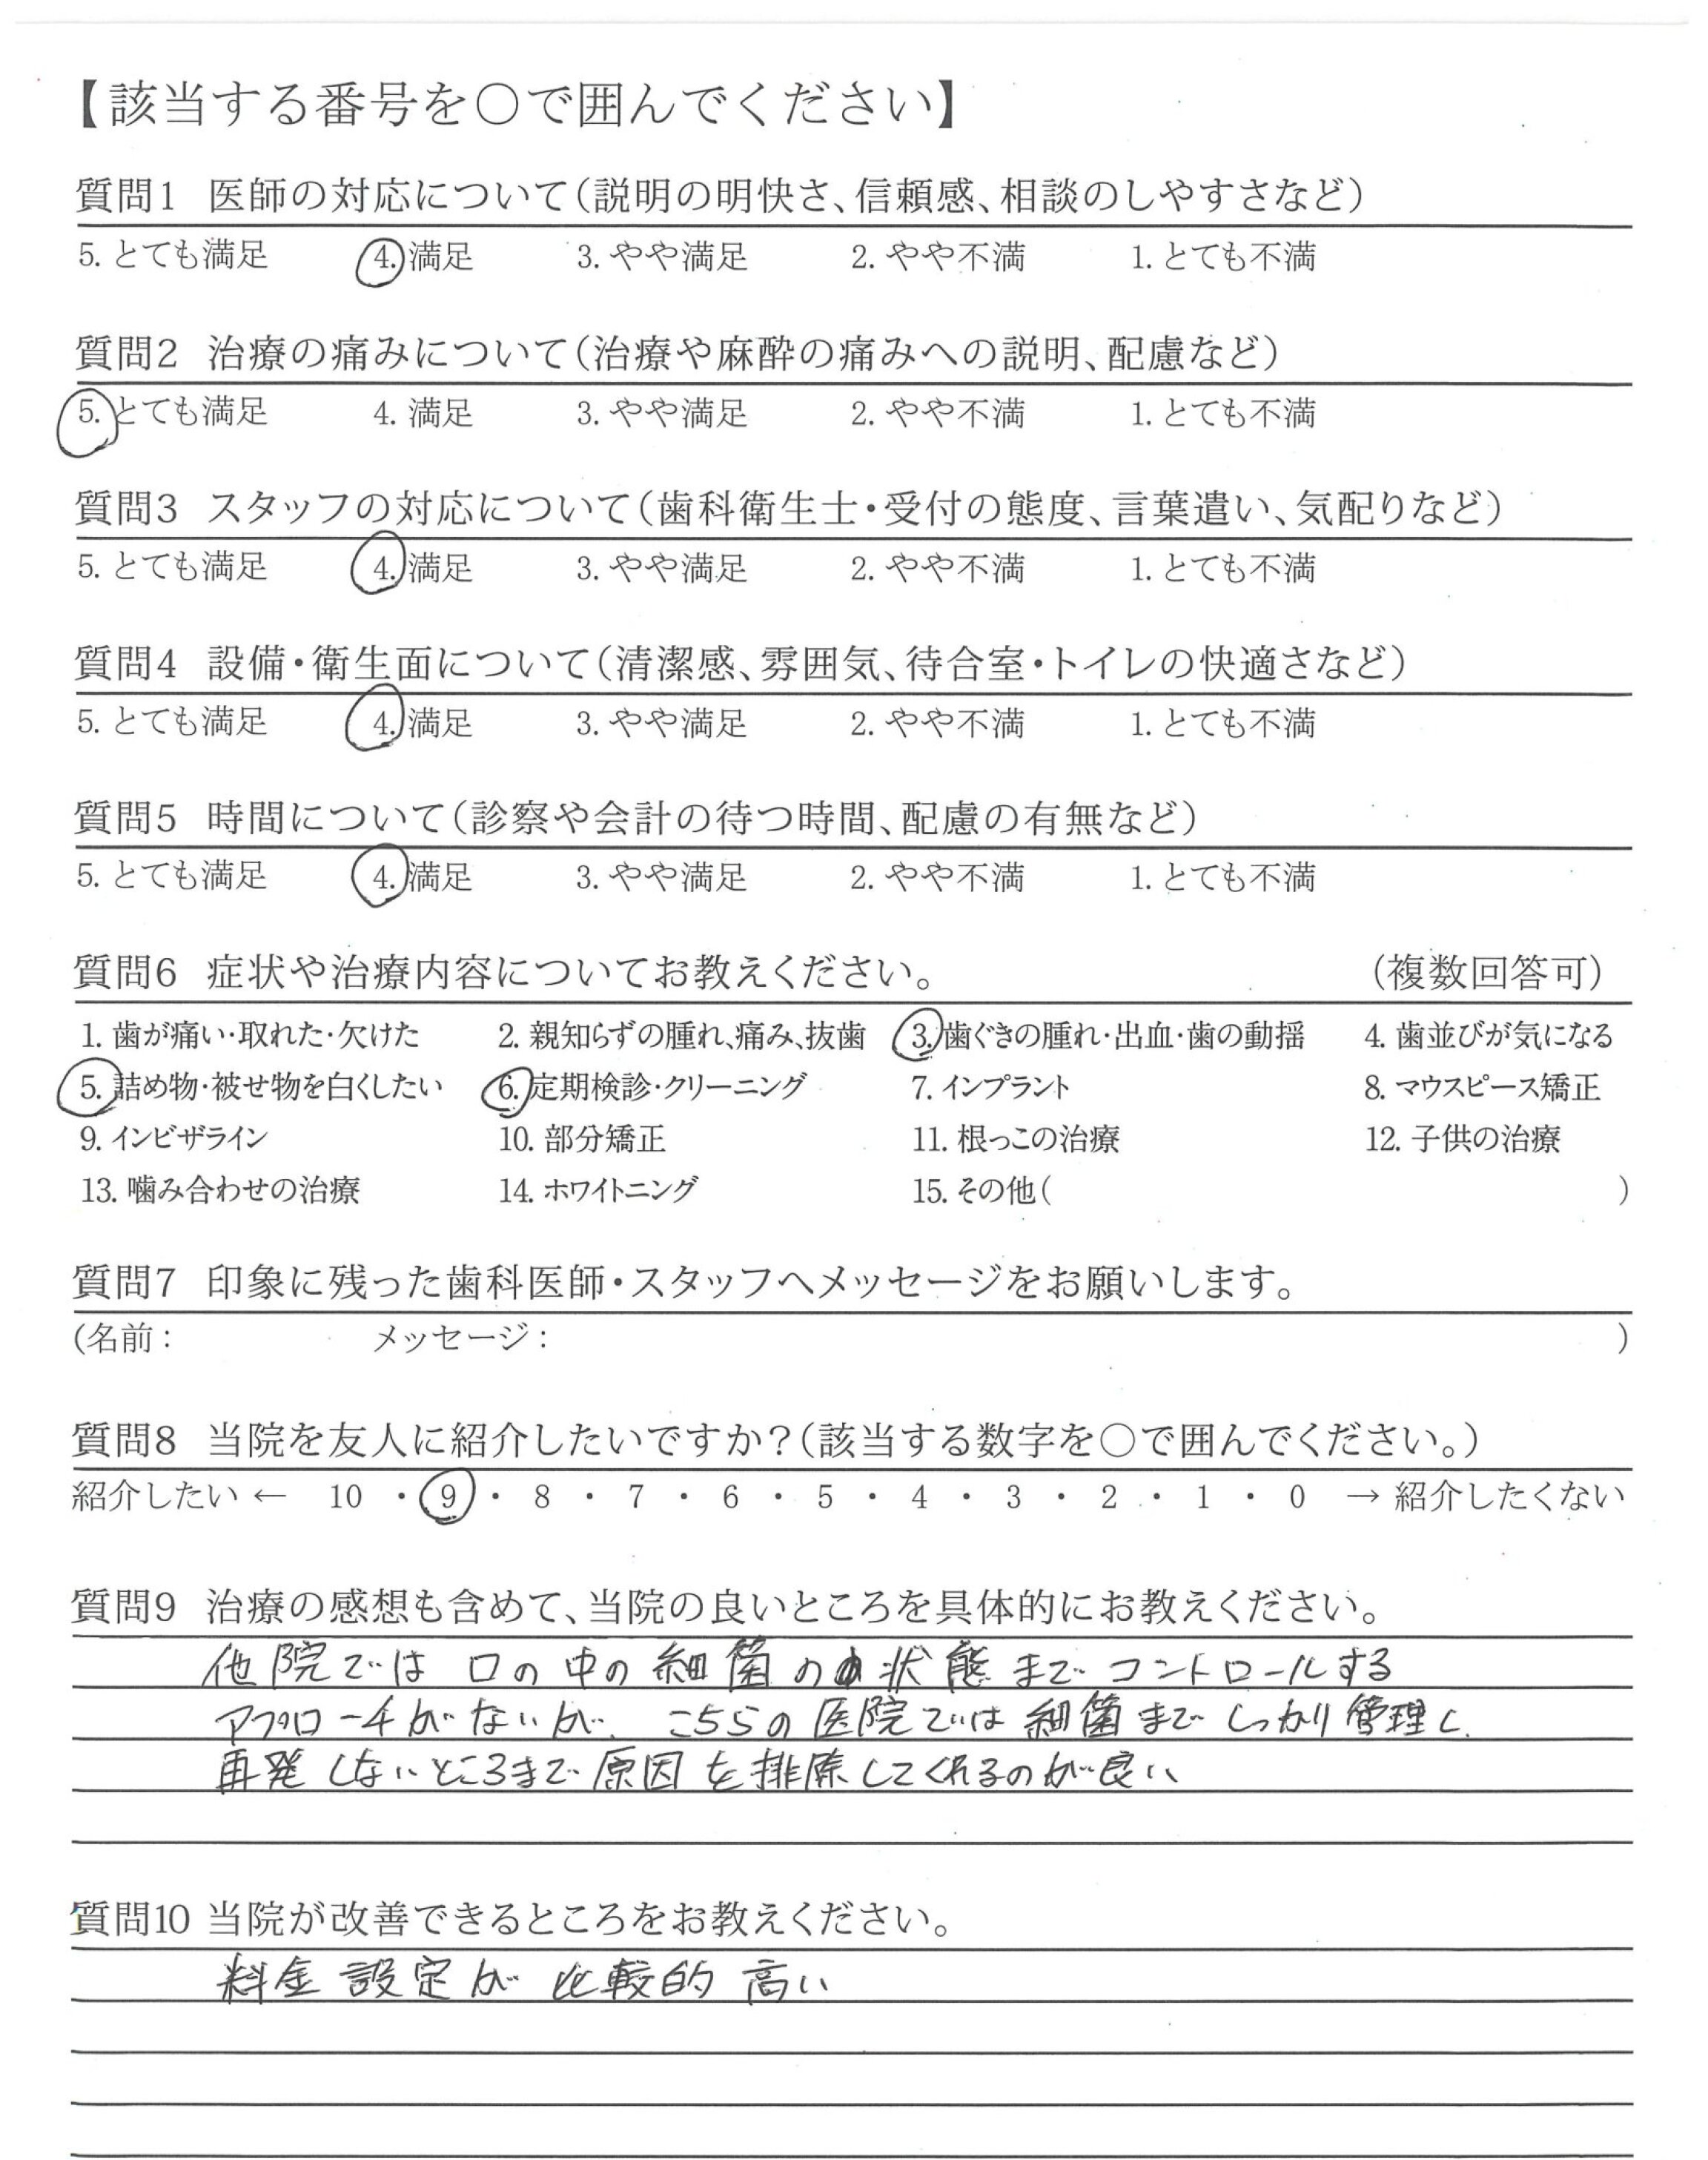 【該当する番号を〇で囲んでください】
質問1 医師の対応について(説明の明快さ、信頼感、相談のしやすさなど)
5. とても満足 4. 満足 3. やや満足 2. やや不満 1. とても不満
質問2 治療の痛みについて(治療や麻酔の痛みへの説明、配慮など)
5. とても満足 4. 満足 3. やや満足 2. やや不満 1. とても不満
質問3 スタッフの対応について(歯科衛生士・受付の態度、言葉遣い、気配りなど)
5. とても満足 4. 満足 3. やや満足 2. やや不満 1. とても不満
質問4 設備・衛生面について(清潔感、雰囲気、待合室・トイレの快適さなど)
5. とても満足 4. 満足 3. やや満足 2. やや不満 1. とても不満
質問5 時間について(診察や会計の待つ時間、配慮の有無など)
5. とても満足 4. 満足 3. やや満足 2. やや不満 1. とても不満
質問6 症状や治療内容についてお教えください。 (複数回答可)
1. 歯が痛い・取れた・欠けた 2. 親知らずの腫れ、痛み、抜歯 3. 歯ぐきの腫れ・出血・歯の動揺 4. 歯並びが気になる
5. 詰め物・被せ物を白くしたい 6. 定期検診・クリーニング 7. インプラント 8. マウスピース矯正
9. インビザライン 10. 部分矯正 11. 根っこの治療 12. 子供の治療
13. 噛み合わせの治療 14. ホワイトニング 15. その他( )
質問7 印象に残った歯科医師・スタッフへメッセージをお願いします。
(名前: メッセージ: )
質問8 当院を友人に紹介したいですか?(該当する数字を〇で囲んでください。)
紹介したい ← 10 ・ 9 ・ 8 ・ 7 ・ 6 ・ 5 ・ 4 ・ 3 ・ 2 ・ 1 ・ 0 → 紹介したくない
質問9 治療の感想も含めて、当院の良いところを具体的にお教えください。
他院では 口の中の細菌の状態までコントロールする
アプローチがないが、こちらの医院では細菌までしっかり管理し、
再発しないところまで原因を排除してくれるのが良い
質問10 当院が改善できるところをお教えください。
料金設定が比較的高い